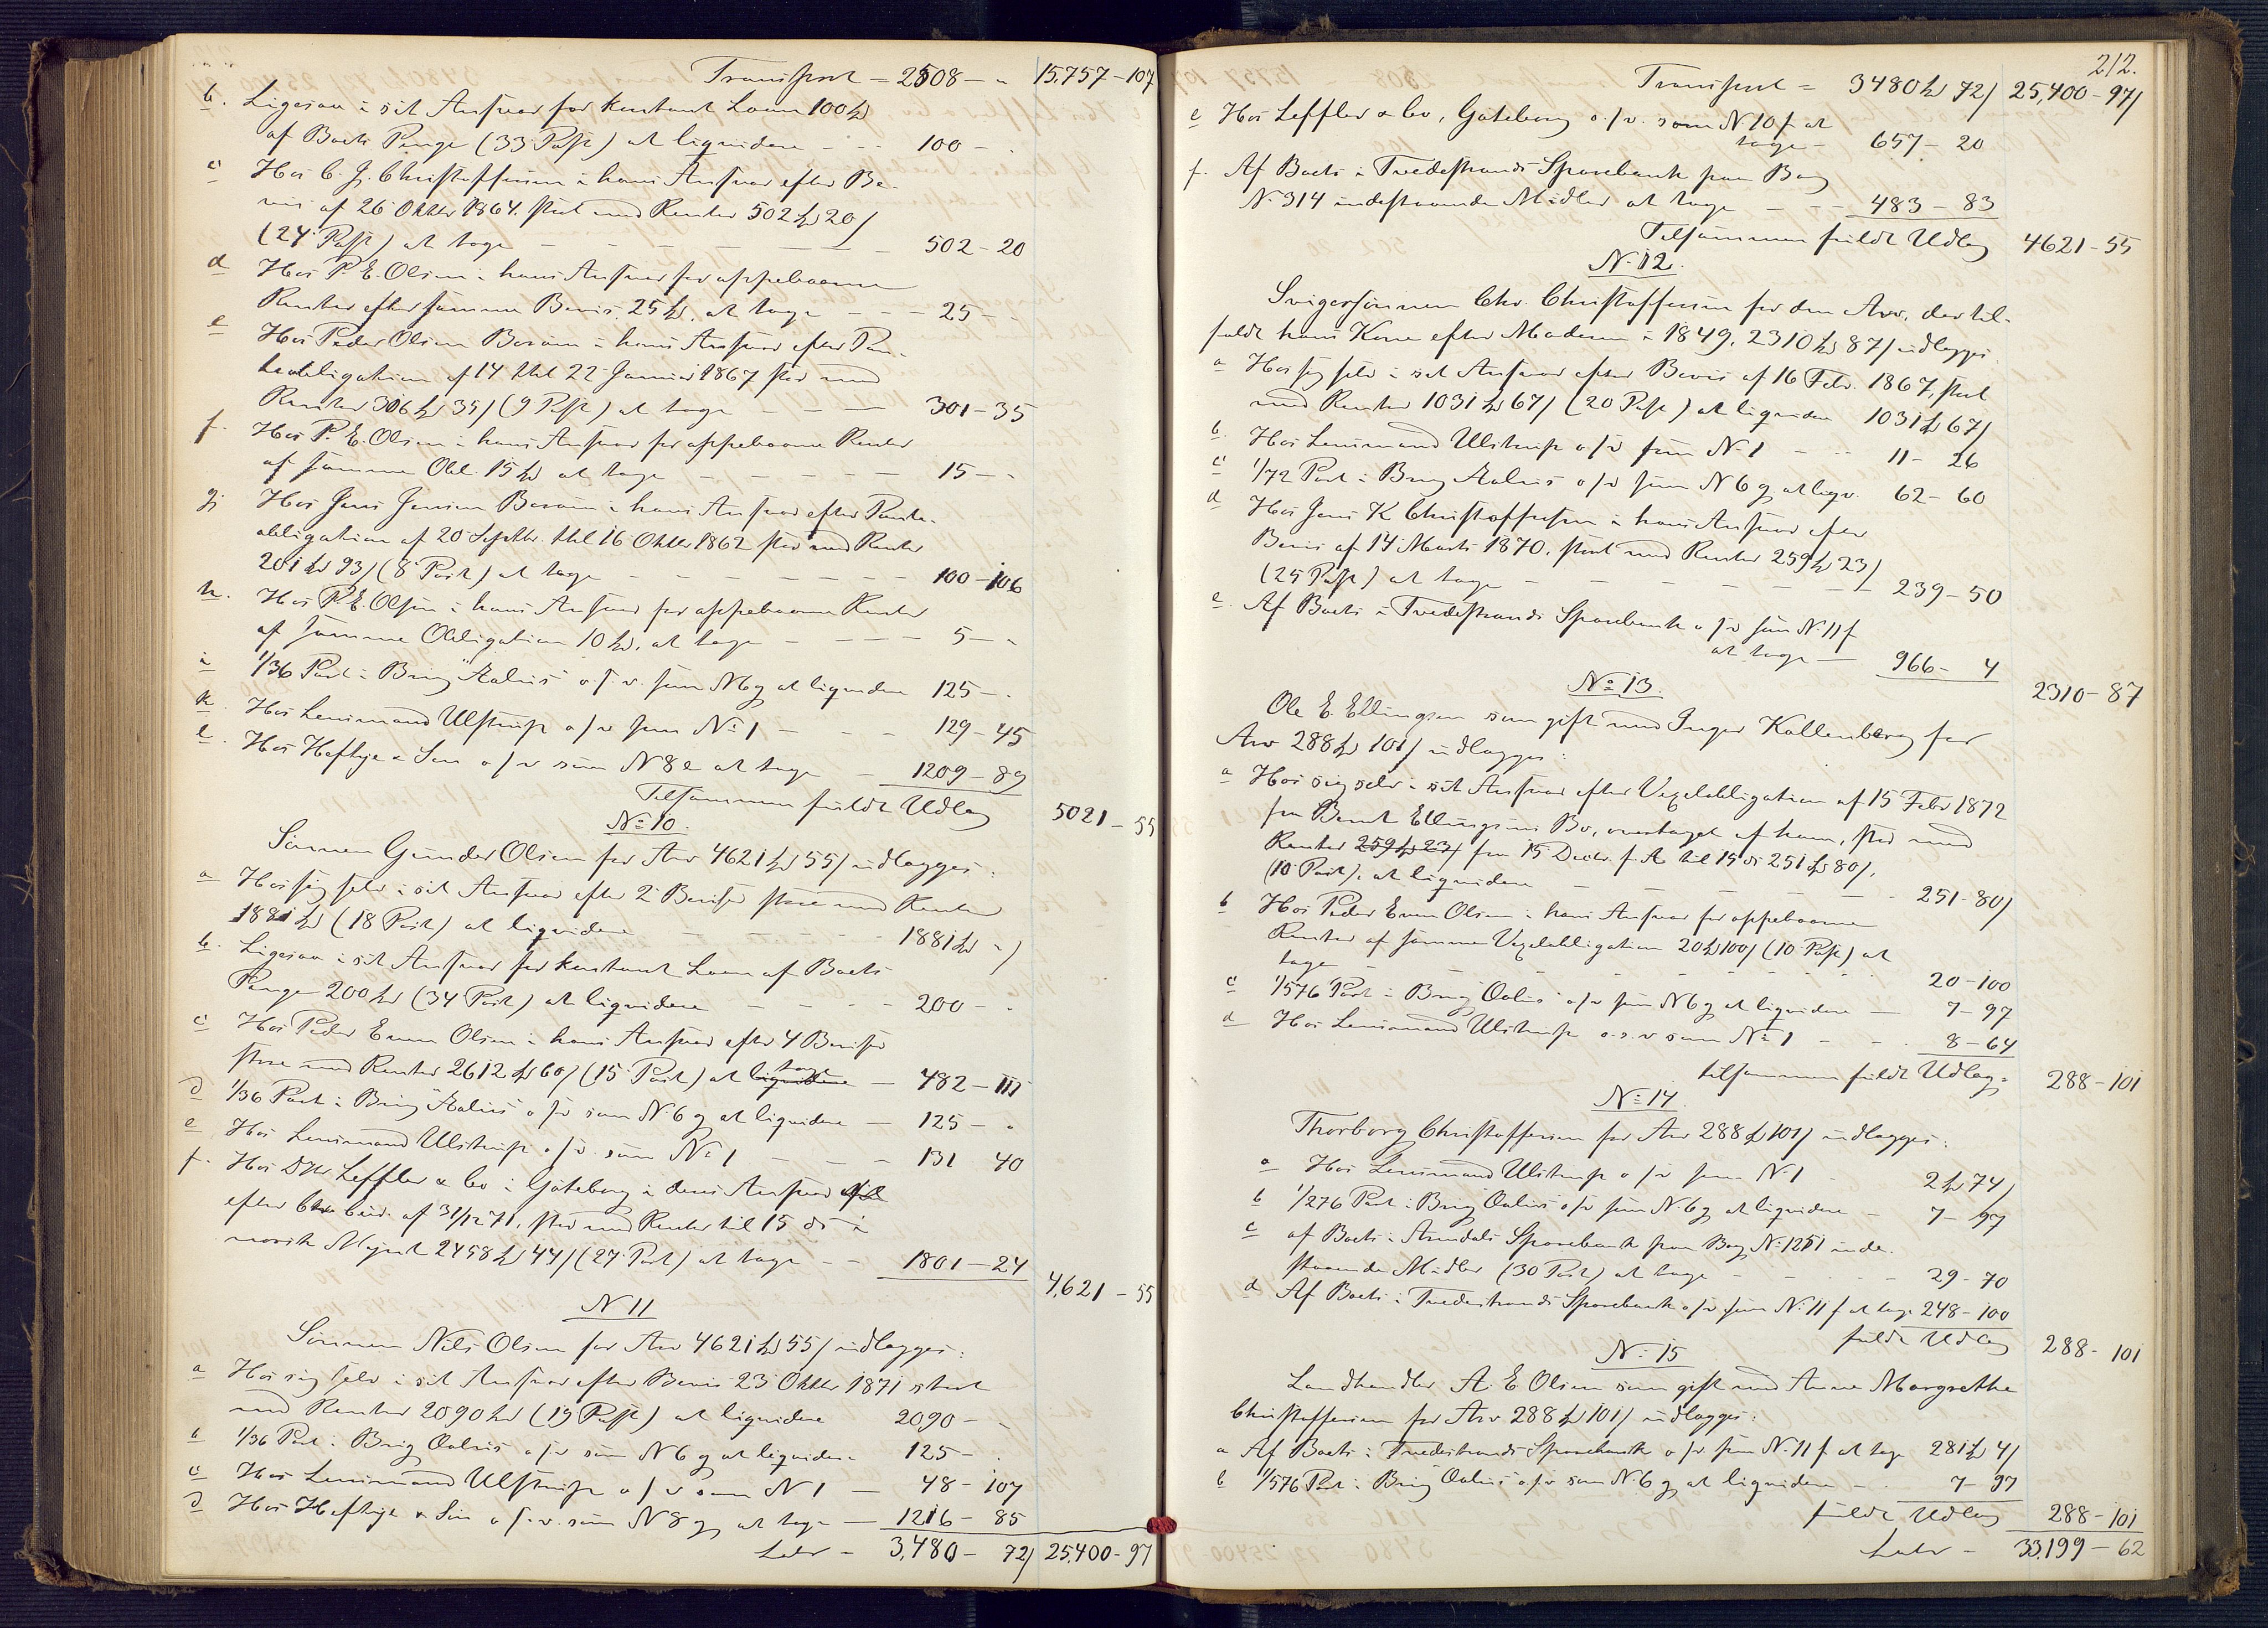 Transport = 2508 – " 15,757 – 107
b. Ligesaa i sit Ansvar for kontant Laan 100 Spd
af Boets Penge (33 Post) at liquidere – – 100 – "
c Hos C. J. Christoffersen i hans Ansvar efter Be-
vis af 26 Oktbr 1864. stort med Renter 502 Spd 20 ß
(24 Post) at tage – – – – 502 – 20
d Hos P. E. Olsen i hans Ansvar for oppebaarne
Renter efter samme Bevis, 25 Spd, at tage – – – 25 – "
e Hos Peder Olsen Boraas i hans Ansvar efter Pan-
teobligation af 14 thl 22 Januar 1867 stor med
Renter 306 Spd 35 ß (9 Post) at tage – – – 301 – 35
f. Hos P. E. Olsen i hans Ansvar for oppebaarne Renter
af samme Obl. 15 Spd at tage – – – – 15 – "
g Hos Jens Jensen Boraas i hans Ansvar efter Pante-
obligation af 20 Septbr. thl 16 Oktbr 1862 stor med Renter
201 Spd 93 ß (8 Post) at tage – – – – 100 – 106
h. Hos P. E. Olsen i hans Ansvar for oppebaarne Renter
af samme Obligation 10 Spd, at tage – – – 5 – "
i 1/36 Part i Brig "Aalius" o. s. v. som N 6 g at liquidere 125 – "
k. Hos Lensmand Ulstrup o s v som No 1 – – – 129 – 45
l. Hos Heftye & Søn o s v som N 8 e at tage – 1209 – 89
Tilsammen fuldt Udlæg 5021 – 55
No 10.
Sønnen Gunder Olsen for Arv 4621 Spd 55 ß udlægges:
a Hos sig selv i sit Ansvar efter 2 Beviser store med Renter
1881 Spd (18 Post) at liquidere – – – 1881 Spd " ß
b. Ligesaa i sit Ansvar for kontant Laan af Boets
Penge 200 Spd (34 Post) at liquidere – – – 200 – "
c Hos Peder Even Olsen i hans Ansvar efter 4 Beviser
store med Renter 2612 Spd 60 ß (15 Post) at liquidere tage – 482 – 111
d 1/36 Part i Brig "Aalius" o s v som N. 6 g at liquidere – 125 – "
e Hos Lensmand Ulstrup o s v. som No 1 – – – 131 40
f. Hos DHr. Leffler & Co i Gøteborg i deres Ansvar
efter af 31/12 71, stor med Renter til 15 ds i
norsk Mynt 2458 Spd 44 ß (27 Post) at tage – – 1801 – 24
4,621 – 55
N 11
Sønnen Nils Olsen for Arv 4621 Spd 55 ß udlægges:
a Hos sig selv i sit Ansvar efter Bevis 23 Oktbr 1871 stort
med Renter 2090 Spd (19 Post) at liquidere 2090 – "
b 1/36 Part i Brig Aalius o s v som N 6 g at liquidere 125 – "
c Hos Lensmand Ulstrup o s v som N 1 – 48 – 107
d Hos Heftye & Søn o s. v. som N 8 g, at tage – 1216 – 85
Latr – 3,480 – 72 ß 25,400 – 97
212.
Transport = 3480 Spd 72 ß 25,400 – 97 ß
e Hos Leffler & Co, Gøteborg o. s v. som N 10 f at
tage – 657 – 20
f. Af Boets i Tvedestrands Sparebank paa Bog
No 314 indestaaende Midler at tage – – – 483 – 83
Tilsammen fuldt Udlæg 4621 – 55
No 12.
Svigersønnen Chr. Christoffersen for den Arv, der til-
faldt hans Kone efter Moderen i 1849, 2310 Spd 87 ß udlægges
a Hos sig selv i sit Ansvar efter Bevis af 16 Febr. 1867, stort
med Renter 1031 Spd 67 ß (20 Post) at liquidere 1031 Spd 67 ß
b. Hos Lensmand Ulstrup o s v som No 1 – – 11 – 26
c 1/72 Part i Brig Aalius o s v som N 6 g at liqv. 62 – 60
d Hos Jens K Christoffersen i hans Ansvar efter
Bevis af 14 Marts 1870. stort med Renter 259 Spd 23 ß
(25 Post) at tage – – – – 239 – 50
e. Af Boets i Tvedestrands Sparebank o s v som No 11 f
at tage – 966 – 4
2310 – 87
No 13.
Ole E. Ellingsen som gift med Inger Kallenberg for
Arv 288 Spd 101 ß udlægges:
a Hos sig selv i sit Ansvar efter Vexelobligation af 15 Febr 1872
fra Bernt Ellingsens Bo, overtaget af ham, stor med
Renter 259 Spd 23 ß fra 15 Decbr. f. A. til 15 ds 251 Spd 80 ß.
(10 Post), at liquidere – – – – 251 – 80 ß
b Hos Peder Even Olsen i hans Ansvar for oppebaarne
Renter af samme Vexelobligation 20 Spd 100 ß (10 Post) at
tage – – – – 20 – 100
c 1/576 Part i Brig "Aalius" o s v som N 6 g at liquidere – 7 – 97
d Hos Lensmand Ulstrup o. s. v som No 1 – – 8 – 64
tilsammen fuldt Udlæg = 288 – 101
No 14.
Thorborg Christoffersen for Arv 288 Spd 101 ß udlægges:
a Hos Lensmand Ulstrup o s v som N 1 2 Spd 74 ß
b 1/276 Part i Brig Aalius o s v som N. 6 g at liquidere – 7 – 97
c af Boets i Arendals Sparebank paa Bog No 1251 inde-
staaende Midler (30 Post) at tage – – – 29 – 70
d Af Boets i Tvedestrands Sparebank o s v som No 11 f at tage 248 – 100
fuldt Udlæg 288 – 101
No 15
Landhandler A. E Olsen som gift med Anne Margrethe
Christoffersen for Arv 288 Spd 101 ß udlægges:
a Af Boets i Tvedestrands Sparebank o s v som No 11 f. at tage 281 Spd 4 ß
b 1/576 Part i Brig "Aalius" o s v som N. 6 g at liquidere – 7 – 97
fuldt Udlæg 288 – 101
Latr – 33,199 – 62